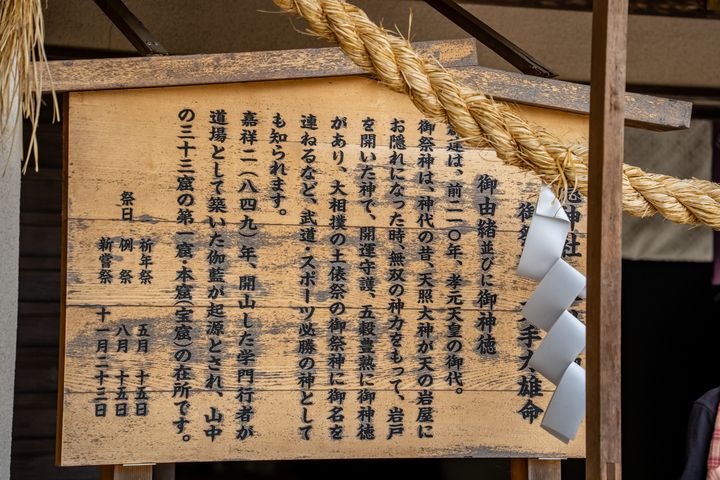 神社
御祭 手力雄命
御由緒並びに御神徳
建は、前二一〇年、孝元天皇の御代。
御祭神は、神代の昔、天照大神が天の岩屋に
お隠れになった時、無双の神力をもって、岩戸
を開いた神で、開運守護、五穀豊熟に御神徳
があり、大相撲の土俵祭の御祭神に御名を
連ねるなど、武道・スポーツ必勝の神として
も知られます。
嘉祥二(八四九)年、開山した学門行者が
道場として築いた伽藍が起源とされ、山中
の三十三窟の第一窟・本窟(宝窟)の在所です。
祭日
祈年祭 五月 十五日
例祭 八月 十五日
新嘗祭 十一月二十三日